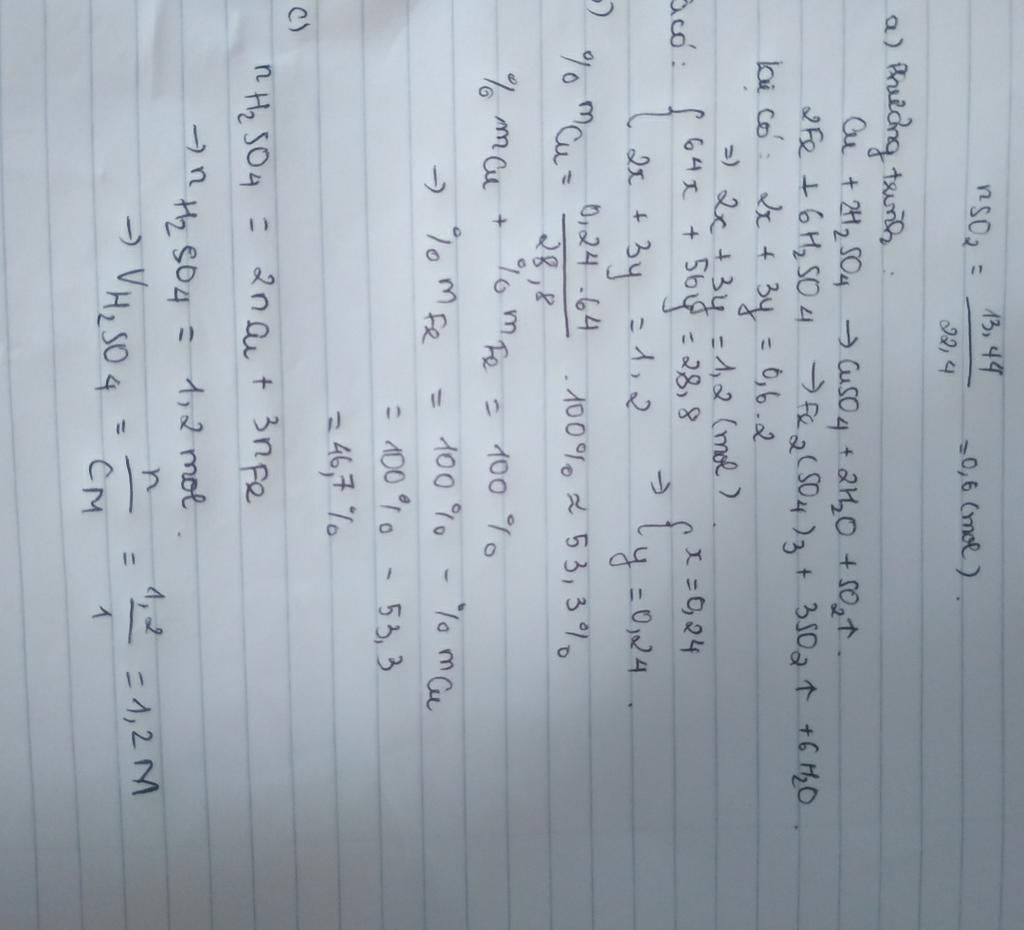 nSO2 = 13,44 / 22,4 = 0,6 (mol).
a) Phương trình:
Cu + 2H2SO4 → CuSO4 + 2H2O + SO2↑.
2Fe + 6H2SO4 → Fe2(SO4)3 + 3SO2↑ + 6H2O.
lại có: 2x + 3y = 0,6.2
=> 2x + 3y = 1,2 (mol).
a có: { 64x + 56y = 28,8
2x + 3y = 1,2 => { x = 0,24
y = 0,24.
) % mCu = 0,24.64 / 28,8 .100% ≈ 53,3%
% mCu + % mFe = 100%
→ % mFe = 100% - % mCu
= 100% - 53,3
= 46,7%
c)
nH2SO4 = 2nCu + 3nFe
→ nH2SO4 = 1,2 mol.
→ VH2SO4 = n / CM = 1,2 / 1 = 1,2 M